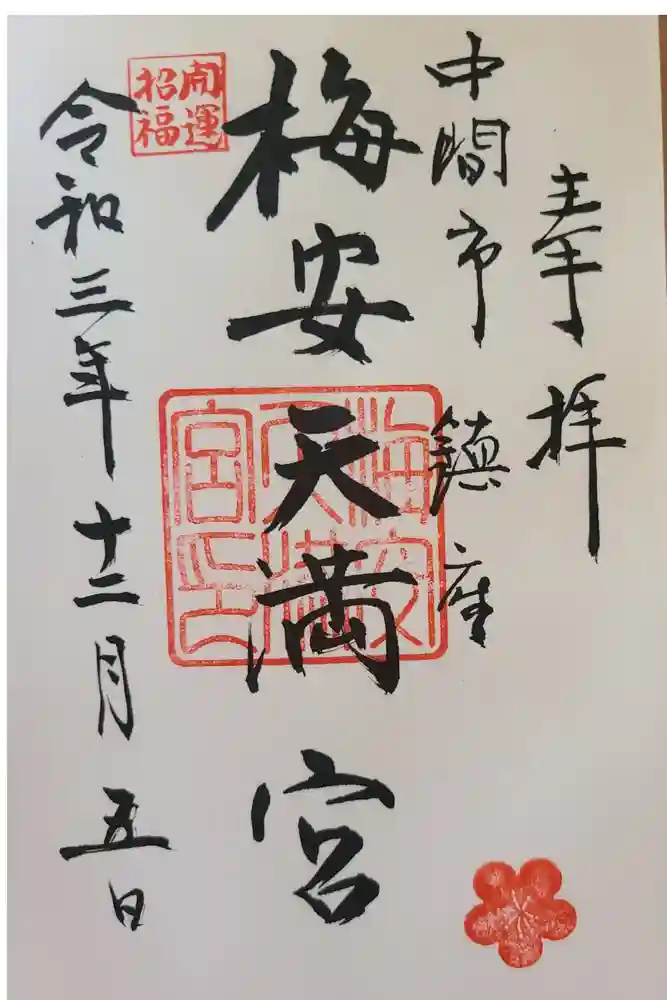 奉拝
中間市 鎮座
梅安天満宮
梅安
天満
宮印
開運
招福
令和三年十二月五日